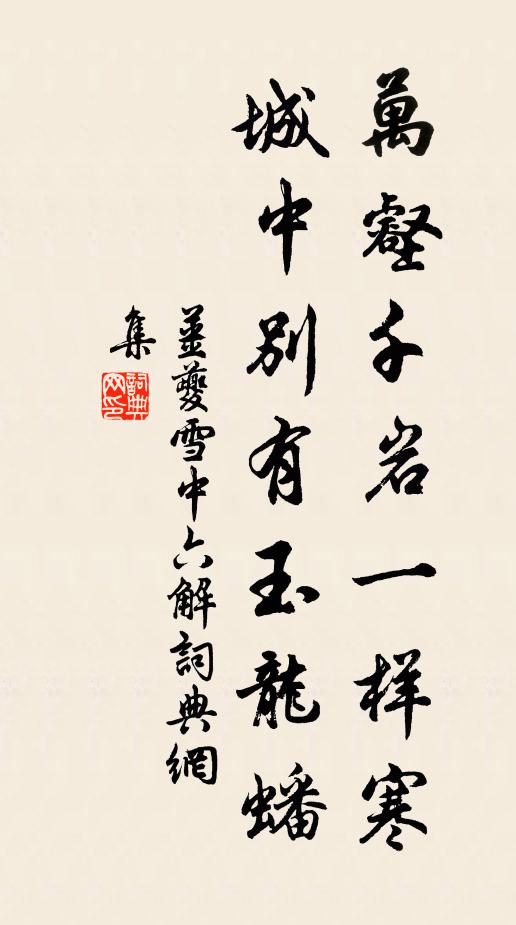 萬壑千岩一样寒
城中别有玉龍蟠
姜夔雪中六解詞典網
集
詞典
网印